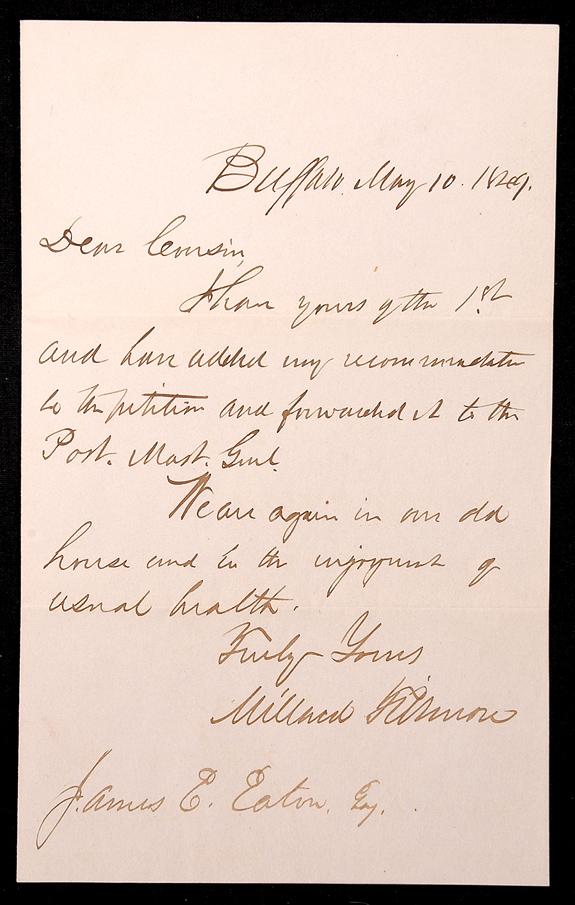 Buffalo, May 10. 1849.
Dear Cousin,
I have yours of the 1st
and have added my recommendation
to the petition and forwarded it to the
Post. Mast. Genl.
We are again in our old
house and in the enjoyment of
usual health.
Truly Yours
Millard Fillmore
James E. Eaton, Esq.